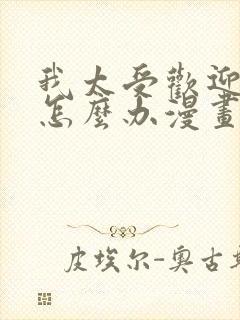 我太受歡迎
怎麼办漫畫
皮埃尔-奥古